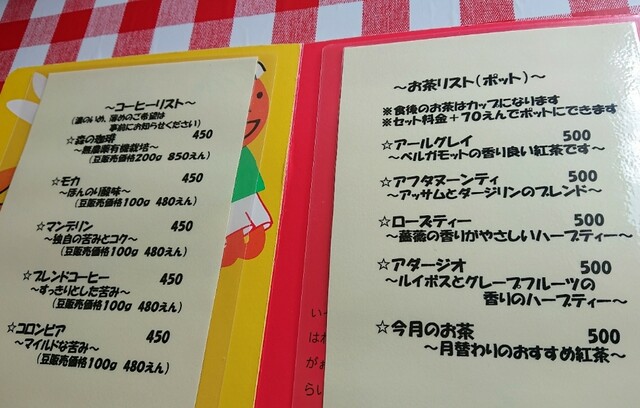 ～コーヒーリスト～
(濃いめ、薄めのご希望は
事前にお知らせください)
☆森の珈琲 450
～無農薬有機栽培～
(豆販売価格200g 850えん)
☆モカ 450
～ほんのり酸味～
(豆販売価格100g 480えん)
☆マンデリン 450
～独自の苦みとコク～
(豆販売価格100g 480えん)
☆ブレンドコーヒー 450
～すっきりとした苦み～
(豆販売価格100g 480えん)
☆コロンビア 450
～マイルドな苦み～
(豆販売価格100g 480えん)
～お茶リスト(ポット)～
※食後のお茶はカップになります
※セット料金＋70えんでポットにできます
☆アールグレイ 500
～ベルガモットの香り良い紅茶です～
☆アフタヌーンティ 500
～アッサムとダージリンのブレンド～
☆ローズティー 500
～薔薇の香りがやさしいハーブティー～
☆アダージオ 500
～ルイボスとグレープフルーツの
香りのハーブティー～
☆今月のお茶 500
～月替わりのおすすめ紅茶～